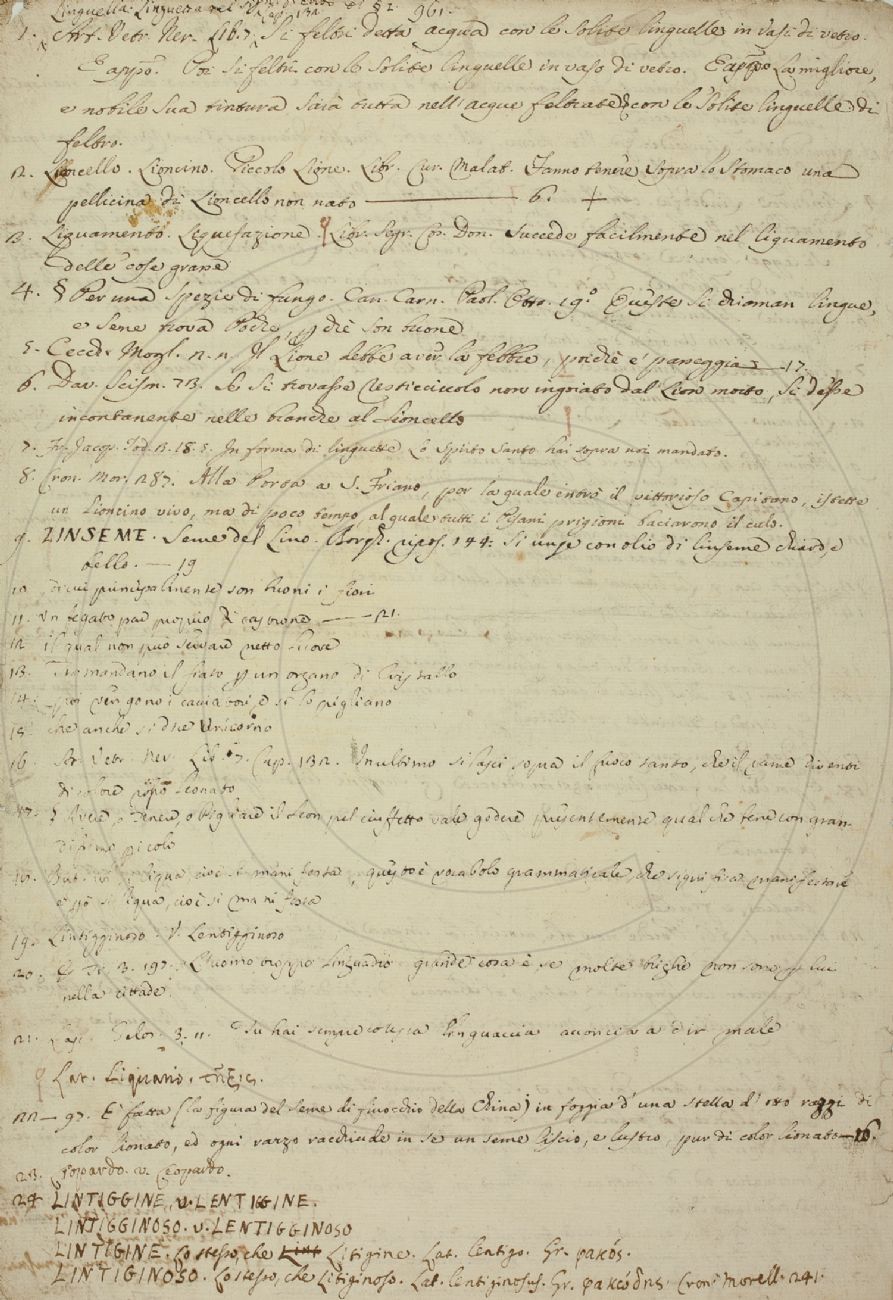 Linguella. Linguetta nel § 2. 961.
1. Art. Vetr. Ner. Lib. 7. Si feltri detta acqua con le solite linguelle in vasi di vetro.
E appo. Poi si feltri con le solite linguelle in vaso di vetro. E appo La migliore,
e nobile sua tintura sarà tutta nell'acque feltrate con le solite linguelle di
feltro.
2. Lioncello. Lioncino. Piccolo Lione. Libr. Cur. Malat. Fanno tenere sopra lo stomaco una
pellicina di Lioncello non nato — 6. +
3. Liquamento. Liquefazione. Libr. Segr. Cos. Don. Succede facilmente nel liquamento
delle cose grasse
4. § Per una spezie di fungo. Can. Carn. Paol. Otto. 19. Queste si chiaman lingue,
e sene trova poche, p chè son buone
5. Cecch. Mogl. 2. 2. Il Lione debbe aver la febbre, poichè e' paneggia — 17.
6. Dav. Scism. 73. Se si trovasse testicciuolo non ingoiato dal Lion morto, si desse
incontanente nelle branche al Lioncello
7. Fr. Jacop. Tod. 2. 18. 5. In forma di linguette Lo Spirito Santo hai sopra noi mandato.
8. Cron. Mor. 287. Alla Porta a S. Friano, por la quale entrò il vittorioso Capitano, istette
un Lioncino vivo, ma di poco tempo, al quale tutti i Pisani prigioni baciarono il culo.
9. LINSEME. Seme del Lino. Borgh. ripos. 144. Si unge con olio di linseme chiaro, e
bello. — 19
10. di cui principalmente son buoni i fiori
11. Un fegato pur proprio di castrone — 21.
12 il qual non può serbare netto lione
13. Tramandano il fiato p un organo di Cristallo
14. poi vengono i cacciatori, e si lo pigliano
15. che anche si dice Unicorno
16. Ar. Vetr. Ner. Lib. 7. Cap. 132. In ultimo si lasci sopra il fuoco tanto, che il rame diventi
di colore lionato
17. § Avere, o Tenere, o Pigliare il Leon pel ciuffetto vale godere presentemente qual che bene con gran-
dissimo pericolo
18. But. Liqua cioè si manifesta, questo è vocabolo grammaticale che significa manifestare
e però si liqua, cioè si manifesta
19. Lintigginoso. V. Lentigginoso
20. Tr. 3. 197. L'uomo troppo linguadro grande cosa è se molte brighe non sono p lui
nella cittade.
21. Lasc. Gelos. 3. 11. Tu hai sempre cotesta linguaccia avvezza a dir male
Lat. Liquatio.
22 — 97. E' fatta (la figura del seme di finocchio della China) in foggia d'una stella d'otto raggi di
color lionato, ed ogni razzo racchiude in se un seme liscio, e lustro, pur di color lionato — 16.
23. Liopardo. v. Leopardo.
24 LINTIGGINE, v. LENTIGGINE.
LINTIGGINOSO. v. LENTIGGINOSO
LINTIGINE. Lo stesso, che Litigine. Lat. lentigo. Gr. φακός.
LINTIGINOSO. Lo stesso, che Litiginoso. Lat. lentiginosus. Gr. φακώδης. Cron. Morell. 241.